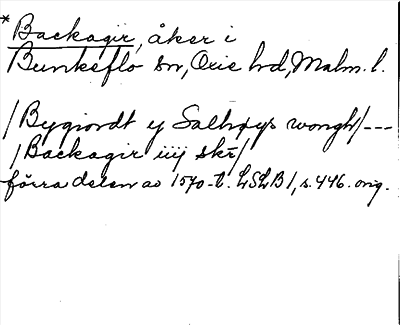 *Backagir, åker i
Bunkeflo sn, Oxie hd, Malm. l.
/Bygiordt ÿ Salhøys wongh/---
/Backagir iiij skr/
förra delen av 1570-t. LSLB 1, s. 446. orig.